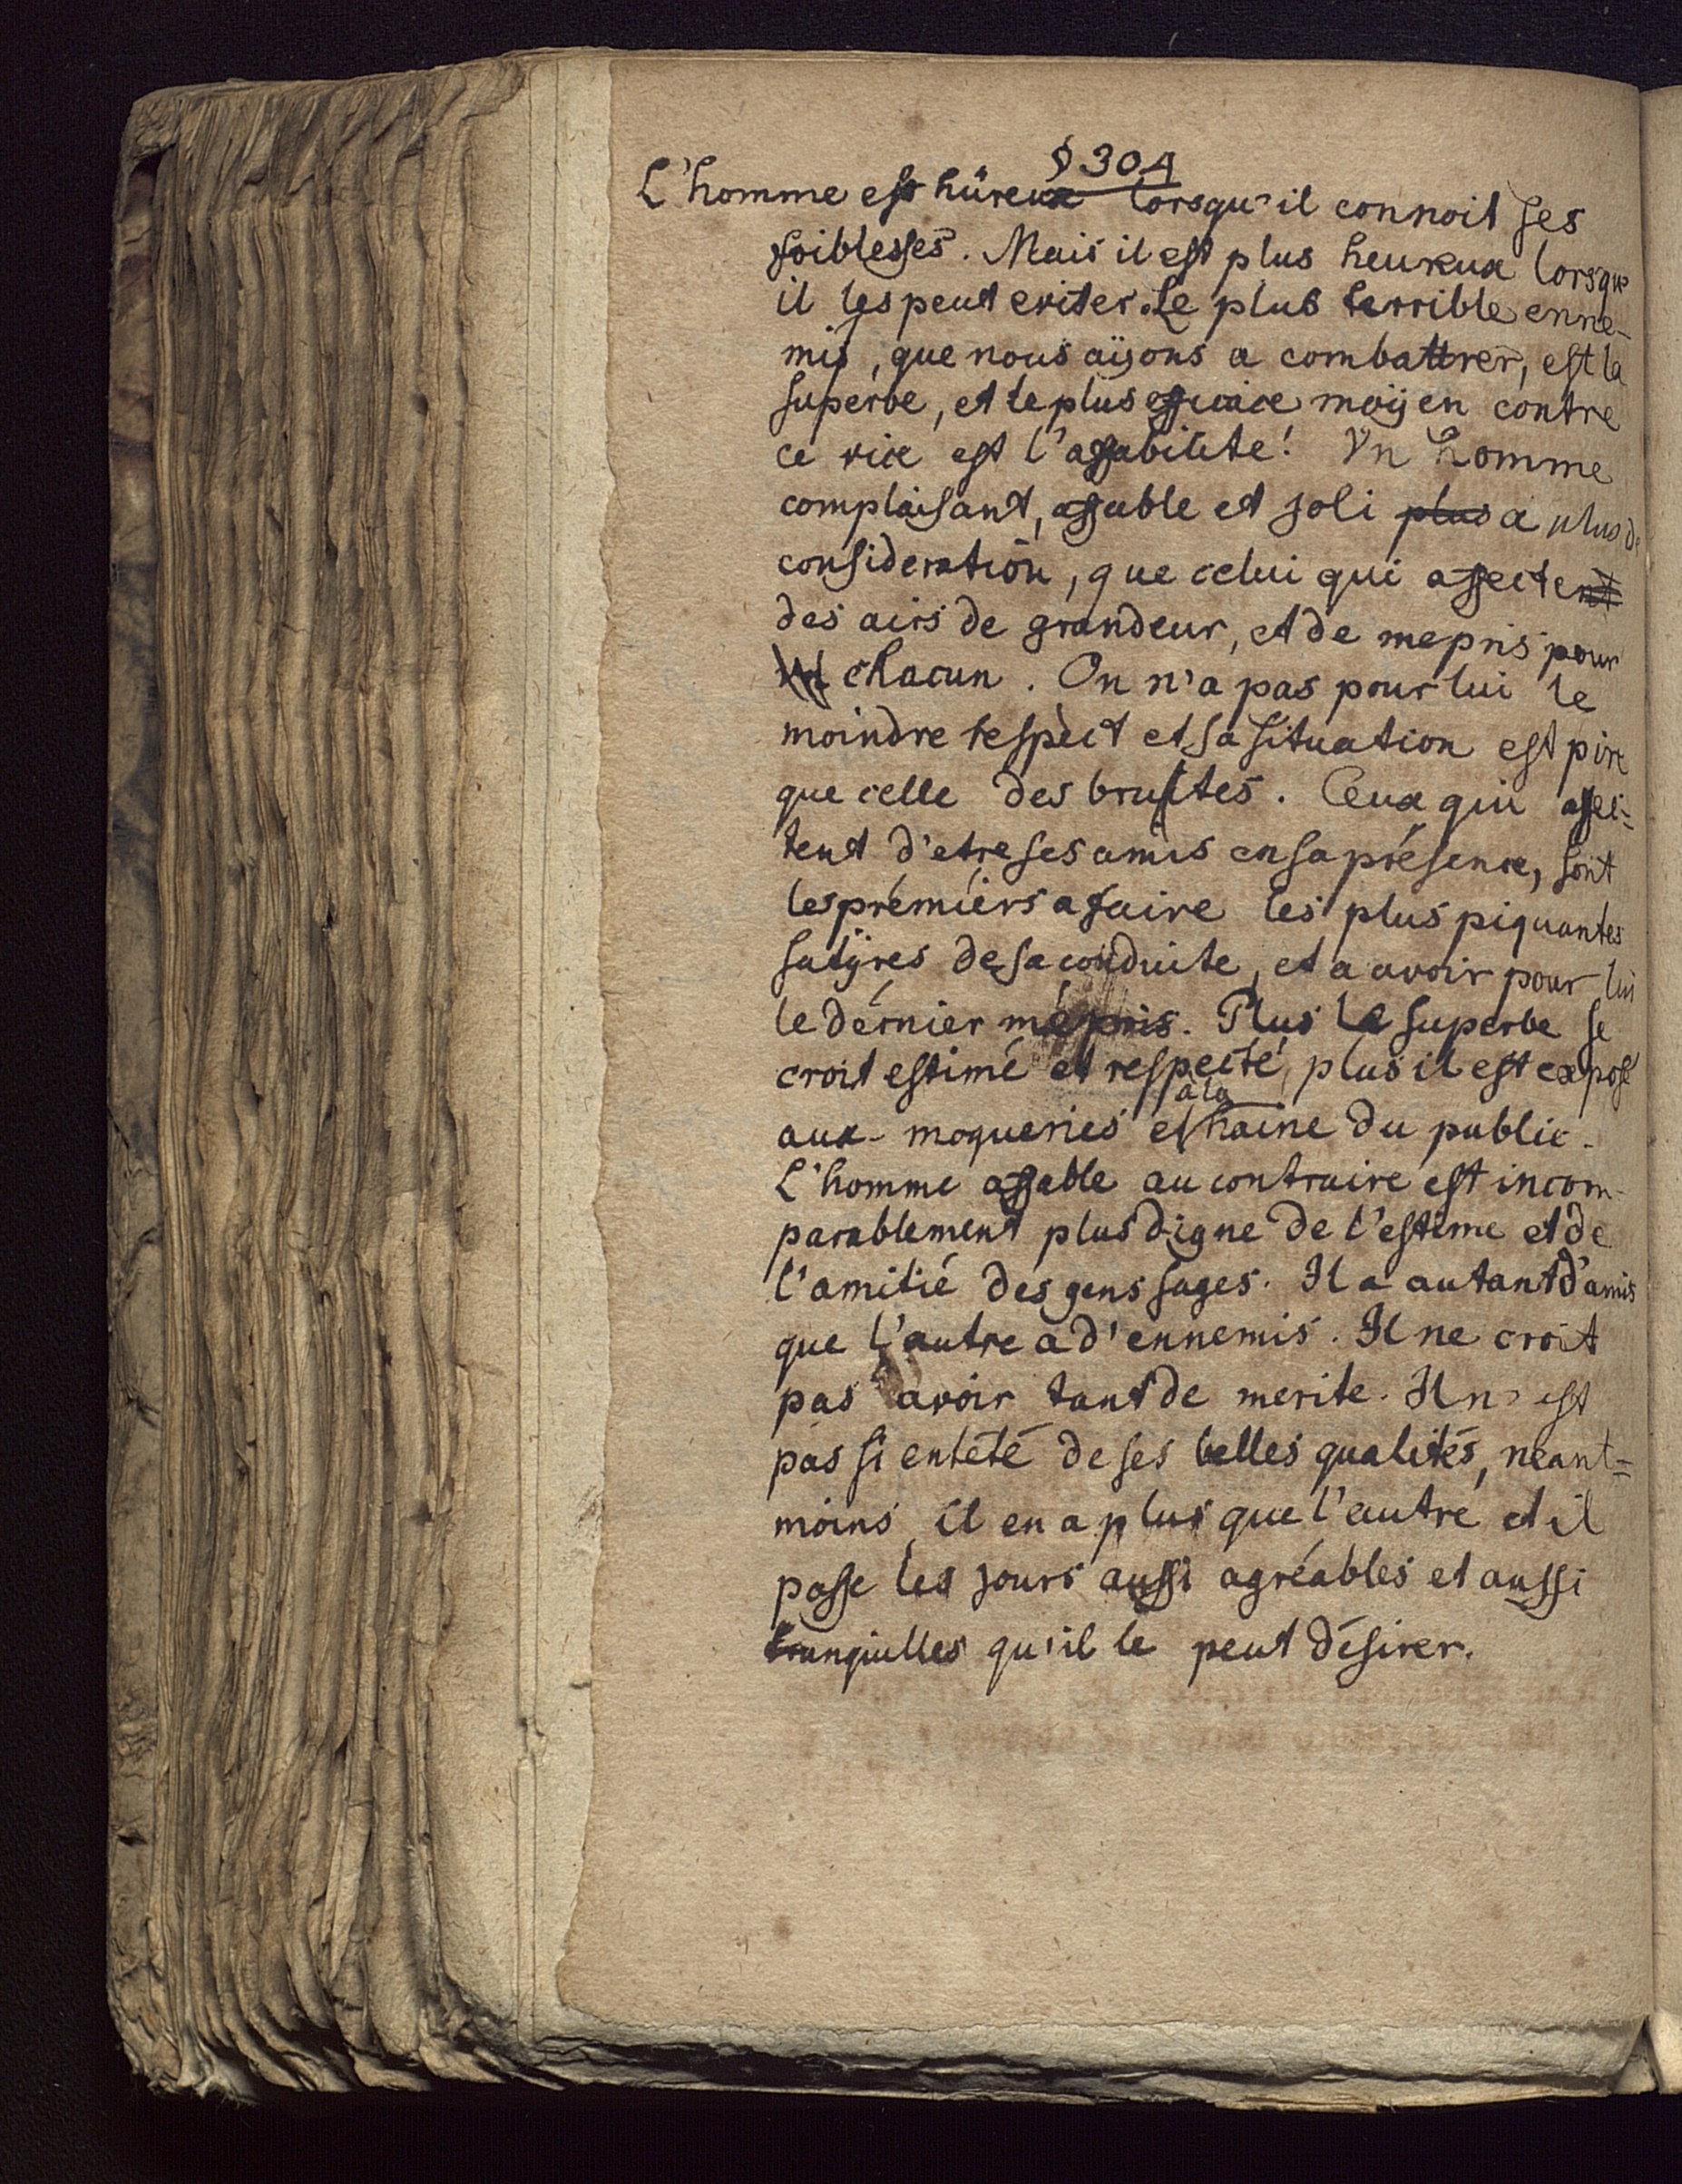 § 304
L'homme est hüreux lorsqu'il connoit ses
foiblesses. Mais il est plus heureux lorsque
il les peut eviter. Le plus terrible enne-
mis, que nous aÿons a combattrer, est la
superbe, et le plus efficace moÿen contre
ce vice est l'afabilite! Un homme
complaisant, affable et joli plus a plus de
consideration, que celui qui affectent
des airs de grandeur, et de mepris pour
chacun. On n'a pas pour lui le
moindre respect et sa situation est pire
que celle des brustes. Ceux qui affec=
tent d'etre ses amis en sa présence, sont
les prémiérs a faire les plus piquantes
satÿres de sa conduite, et a avoir pour lui
le dérnier mépris. Plus le superbe se
croit estimé et respecté, plus il est exposé
à la
aux moqueries et haine du public.
L'homme affable au contraire est incom-
parablement plus digne de l'estime et de
l'amitié des gens sages. Il a autant d'amis
que l'autre a d'ennemis. Il ne croit
pas avoir tant de merite. Il n'est
pas si entété de ses belles qualités, neant=
moins, il en a plus que l'autre et il
passe les jours aussi agréables et aussi
tranquilles qu'il le peut désirer.